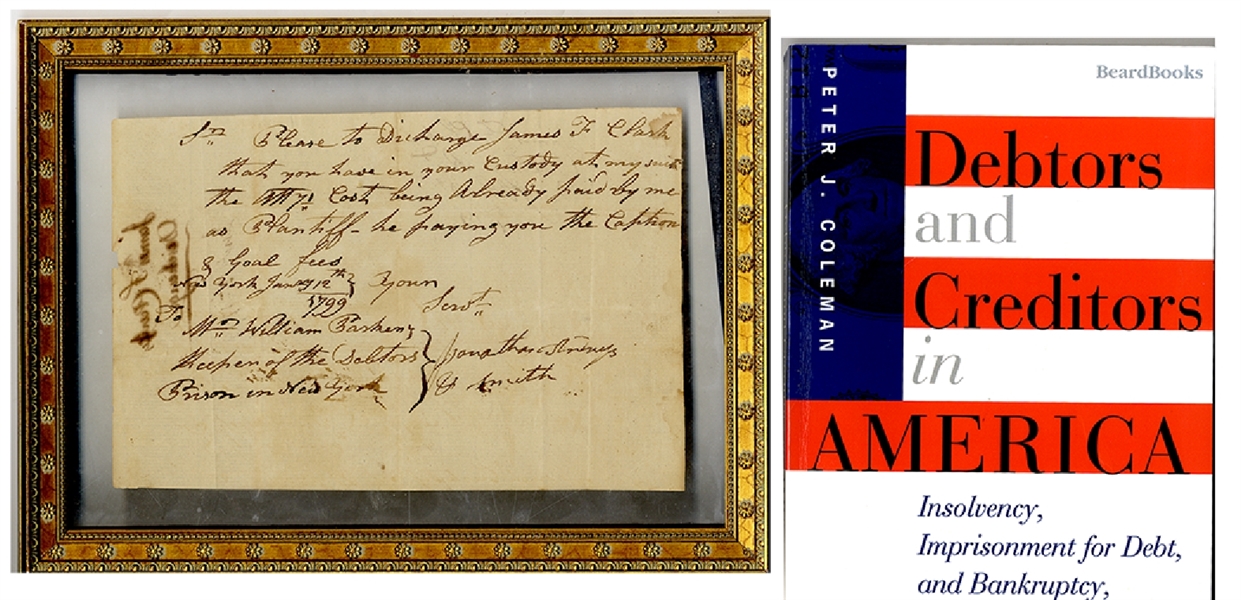 Sr. Please to Discharge James F Clark
that you have in your Custody at my suit
the Cost being Already paid by me
as Plantiff - he paying you the Caption
& Goal fees
New York Jany 12th
1799
Your
Servt.
To
Mr. William Parkens
Keeper of the Debtors
Prison in New York
Jonathan
& Smith
James F Clark
PETER J. COLEMAN
BeardBooks
Debtors
and
Creditors
in
AMERICA
Insolvency,
Imprisonment for Debt,
and Bankruptcy,